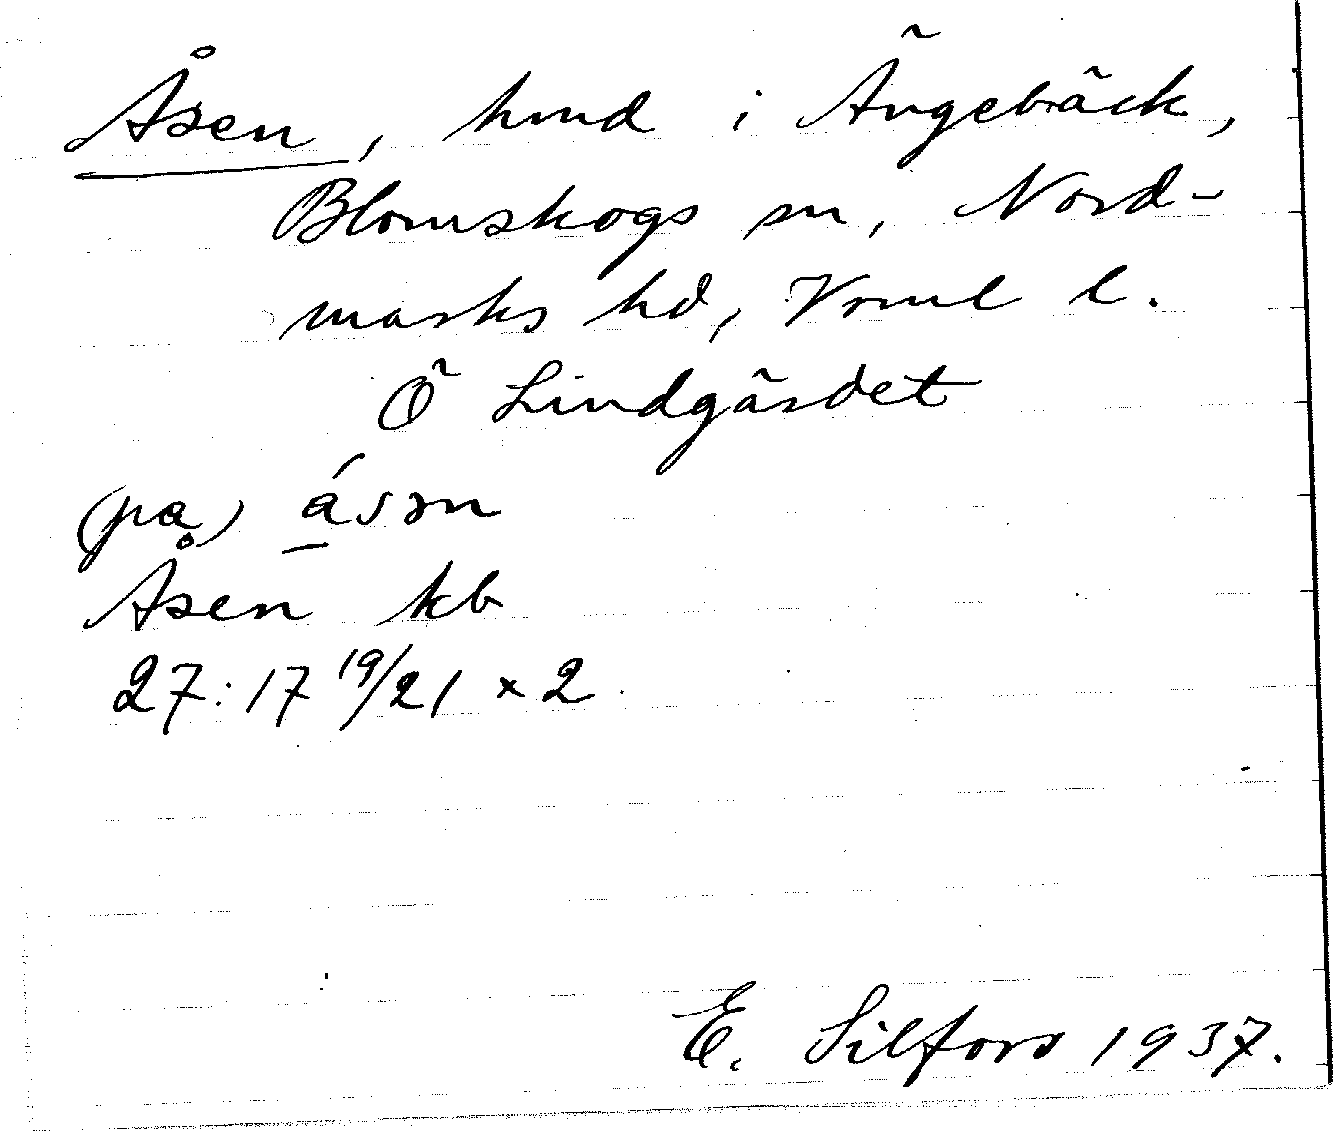 Åsen, hmd i Ängebäck,
Blomskogs sn, Nord-
marks hd, Vrml l.
Ö Lindgärdet
(pa) ásən
Åsen kb
27:17 19/21 × 2
E. Silfors 1937.